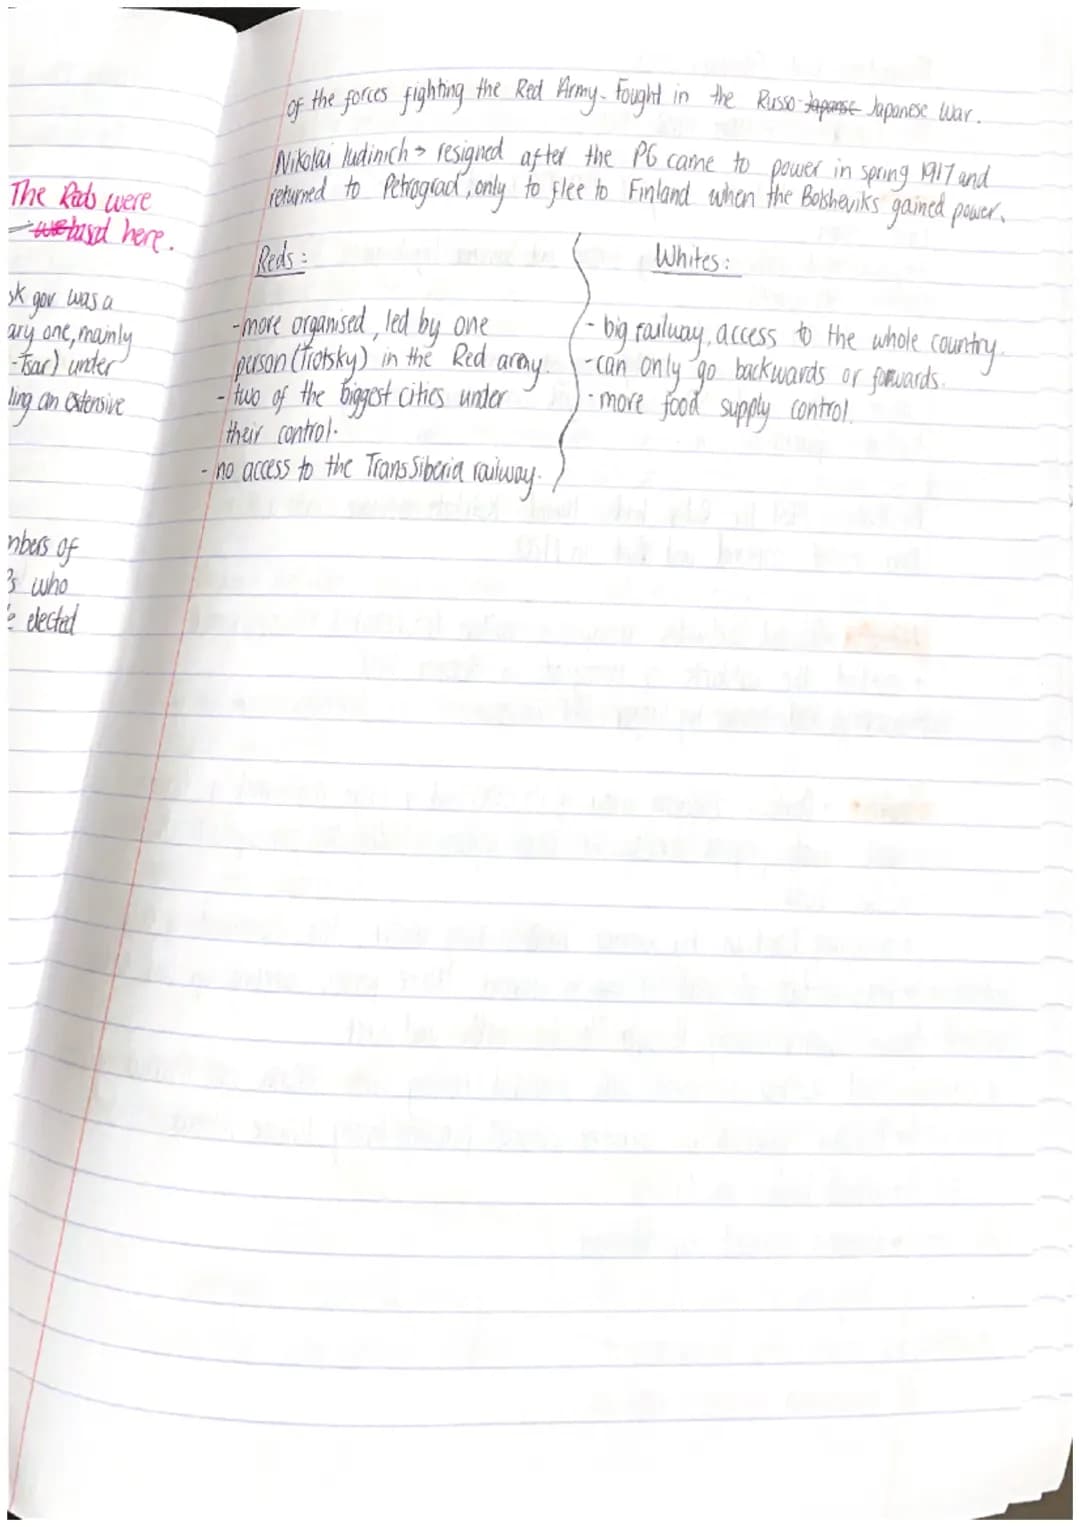 of the forces fighting the Red Army. Fought in the Russo-Japanese Japanese War.
Nikolai Iudinich → resigned after the PG came to power in spring 1917 and
returned to Petrograd, only to flee to Finland when the Bolsheviks gained power.
The Reds were
based here.
sk gov was a
ary one, mainly
-Tsar) under
ling an extensive
mbers of
Rs who
e elected
Reds:
-more organised, led by one
person (Trotsky) in the Red army.
- two of the biggest cities under
their control.
- no access to the TransSiberia railway.
Whites:
- big railway, access to the whole country.
- can only go backwards or forwards.
- more food supply control.